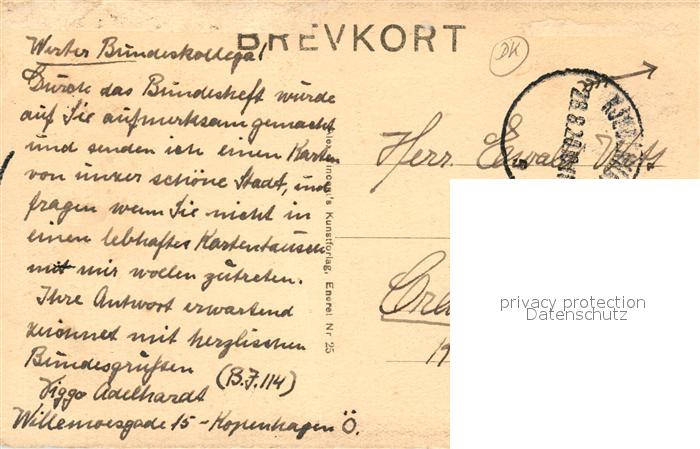 BREVKORT
DK
Werter Bundeskollega!
Durch das Bundesheft wurde
auf Sie aufmerksam gemacht
und senden ich einen Karten
von unzer schöne Stadt, und
fragen wenn Sie nicht in
einen lebhaftes Kartentausen
mit mir wollen zutreten.
Ihre Antwort erwartend
zeichnet mit herzlischen
Bundesgrüssen (B.J. 114)
Viggo Adelhardt
Willemoesgade 15 - Kopenhagen Ö.
Kunstforlag, Eneret Nr 25
Herr. Ewald
privacy protection
Datenschutz